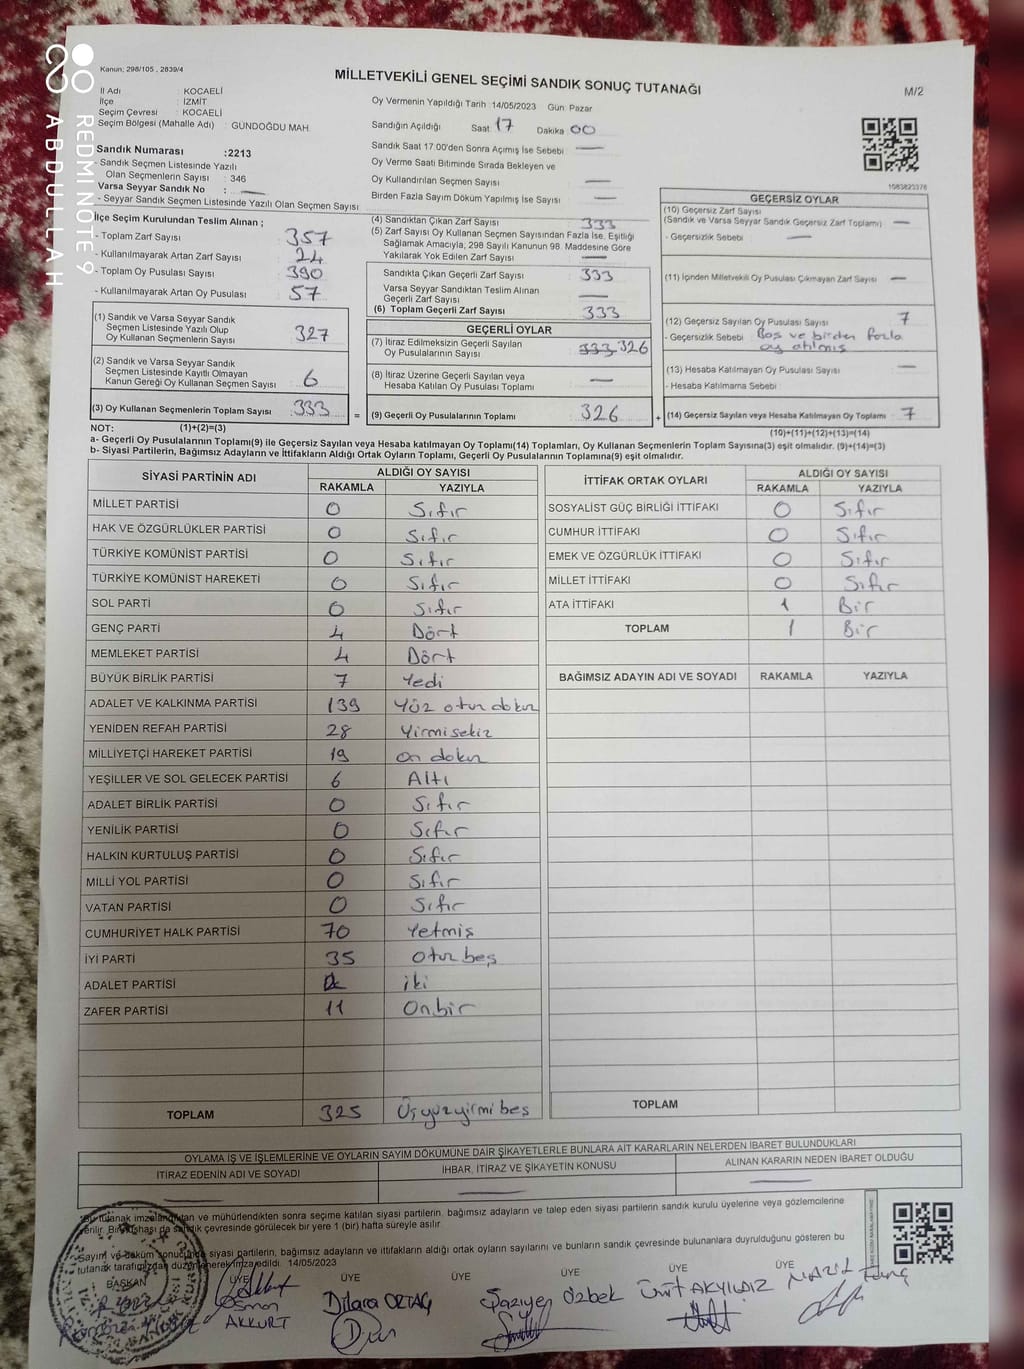 REDMI NOTE 9
ABDULLAH
Kanun: 298/105 , 2839/4
MİLLETVEKİLİ GENEL SEÇİMİ SANDIK SONUÇ TUTANAĞI
M/2
İl Adı : KOCAELİ
İlçe : İZMİT
Seçim Çevresi : KOCAELİ
Seçim Bölgesi (Mahalle Adı) : GÜNDOĞDU MAH.
Sandık Numarası :2213
Sandık Seçmen Listesinde Yazılı
Olan Seçmenlerin Sayısı : 346
Varsa Seyyar Sandık No : —
- Seyyar Sandık Seçmen Listesinde Yazılı Olan Seçmen Sayısı
Oy Vermenin Yapıldığı Tarih :14/05/2023 Gün: Pazar
Sandığın Açıldığı Saat: 17 Dakika 00
Sandık Saat 17.00'den Sonra Açımış İse Sebebi : —
Oy Verme Saati Bitiminde Sırada Bekleyen ve
Oy Kullandırılan Seçmen Sayısı : —
Birden Fazla Sayım Döküm Yapılmış İse Sayısı : —
1083823378
İlçe Seçim Kurulundan Teslim Alınan ;
- Toplam Zarf Sayısı : 357
- Kullanılmayarak Artan Zarf Sayısı : 24
- Toplam Oy Pusulası Sayısı : 390
- Kullanılmayarak Artan Oy Pusulası : 57
(1) Sandık ve Varsa Seyyar Sandık
Seçmen Listesinde Yazılı Olup
Oy Kullanan Seçmenlerin Sayısı : 327
(2) Sandık ve Varsa Seyyar Sandık
Seçmen Listesinde Kayıtlı Olmayan
Kanun Gereği Oy Kullanan Seçmen Sayısı : 6
(3) Oy Kullanan Seçmenlerin Toplam Sayısı : 333
(4) Sandıktan Çıkan Zarf Sayısı : 333
(5) Zarf Sayısı Oy Kullanan Seçmen Sayısından Fazla İse, Eşitliği
Sağlamak Amacıyla, 298 Sayılı Kanunun 98. Maddesine Göre
Yakılarak Yok Edilen Zarf Sayısı : —
Sandıkta Çıkan Geçerli Zarf Sayısı : 333
Varsa Seyyar Sandıktan Teslim Alınan
Geçerli Zarf Sayısı : —
(6) Toplam Geçerli Zarf Sayısı : 333
GEÇERLİ OYLAR
(7) İtiraz Edilmeksizin Geçerli Sayılan
Oy Pusulalarının Sayısı : 333 326
(8) İtiraz Üzerine Geçerli Sayılan veya
Hesaba Katılan Oy Pusulası Toplamı : —
= (9) Geçerli Oy Pusulalarının Toplamı : 326
GEÇERSİZ OYLAR
(10) Geçersiz Zarf Sayısı
(Sandık ve Varsa Seyyar Sandık Geçersiz Zarf Toplamı) : —
- Geçersizlik Sebebi : —
(11) İçinden Milletvekili Oy Pusulası Çıkmayan Zarf Sayısı : —
(12) Geçersiz Sayılan Oy Pusulası Sayısı : 7
- Geçersizlik Sebebi : Boş ve birden fazla
oy atılmış
(13) Hesaba Katılmayan Oy Pusulası Sayısı : —
- Hesaba Katılmama Sebebi :
+ (14) Geçersiz Sayılan veya Hesaba Katılmayan Oy Toplamı : 7
NOT: (1)+(2)=(3)
(10)+(11)+(12)+(13)=(14)
a- Geçerli Oy Pusulalarının Toplamı(9) ile Geçersiz Sayılan veya Hesaba katılmayan Oy Toplamı(14) Toplamları, Oy Kullanan Seçmenlerin Toplam Sayısına(3) eşit olmalıdır. (9)+(14)=(3)
b- Siyasi Partilerin, Bağımsız Adayların ve İttifakların Aldığı Ortak Oyların Toplamı, Geçerli Oy Pusulalarının Toplamına(9) eşit olmalıdır.
SİYASİ PARTİNİN ADI ALDIĞI OY SAYISI
RAKAMLA YAZIYLA
MİLLET PARTİSİ 0 Sıfır
HAK VE ÖZGÜRLÜKLER PARTİSİ 0 Sıfır
TÜRKİYE KOMÜNİST PARTİSİ 0 Sıfır
TÜRKİYE KOMÜNİST HAREKETİ 0 Sıfır
SOL PARTİ 0 Sıfır
GENÇ PARTİ 4 Dört
MEMLEKET PARTİSİ 4 Dört
BÜYÜK BİRLİK PARTİSİ 7 Yedi
ADALET VE KALKINMA PARTİSİ 139 Yüz otuz dokuz
YENİDEN REFAH PARTİSİ 28 Yirmisekiz
MİLLİYETÇİ HAREKET PARTİSİ 19 on dokuz
YEŞİLLER VE SOL GELECEK PARTİSİ 6 Altı
ADALET BİRLİK PARTİSİ 0 Sıfır
YENİLİK PARTİSİ 0 Sıfır
HALKIN KURTULUŞ PARTİSİ 0 Sıfır
MİLLİ YOL PARTİSİ 0 Sıfır
VATAN PARTİSİ 0 Sıfır
CUMHURİYET HALK PARTİSİ 70 Yetmiş
İYİ PARTİ 35 Otuz beş
ADALET PARTİSİ 2 iki
ZAFER PARTİSİ 11 Onbir
TOPLAM 325 Üçyüzyirmi beş
İTTİFAK ORTAK OYLARI ALDIĞI OY SAYISI
RAKAMLA YAZIYLA
SOSYALİST GÜÇ BİRLİĞİ İTTİFAKI 0 Sıfır
CUMHUR İTTİFAKI 0 Sıfır
EMEK VE ÖZGÜRLÜK İTTİFAKI 0 Sıfır
MİLLET İTTİFAKI 0 Sıfır
ATA İTTİFAKI 1 Bir
TOPLAM 1 Bir
BAĞIMSIZ ADAYIN ADI VE SOYADI RAKAMLA YAZIYLA
TOPLAM
OYLAMA İŞ VE İŞLEMLERİNE VE OYLARIN SAYIM DÖKÜMÜNE DAİR ŞİKAYETLERLE BUNLARA AİT KARARLARIN NELERDEN İBARET BULUNDUKLARI
İTİRAZ EDENİN ADI VE SOYADI İHBAR, İTİRAZ VE ŞİKAYETİN KONUSU ALINAN KARARIN NEDEN İBARET OLDUĞU
Bu tutanak imzalandıktan ve mühürlendikten sonra seçime katılan siyasi partilerin, bağımsız adayların ve talep eden siyasi partilerin sandık kurulu üyelerine veya gözlemcilerine
verilir. Bir nüshası da sandık çevresinde görülecek bir yere 1 (bir) hafta süreyle asılır.
Sayım ve döküm sonucunda siyasi partilerin, bağımsız adayların ve ittifakların aldığı ortak oyların sayılarını ve bunların sandık çevresinde bulunanlara duyrulduğunu gösteren bu
tutanak tarafımızdan düzenlenerek imza edildi. 14/05/2023
BAŞKAN ÜYE ÜYE ÜYE ÜYE ÜYE
Osman AKKURT
Dilara ORTAÇ
Şaziye Özbek
Ümit AKYILDIZ